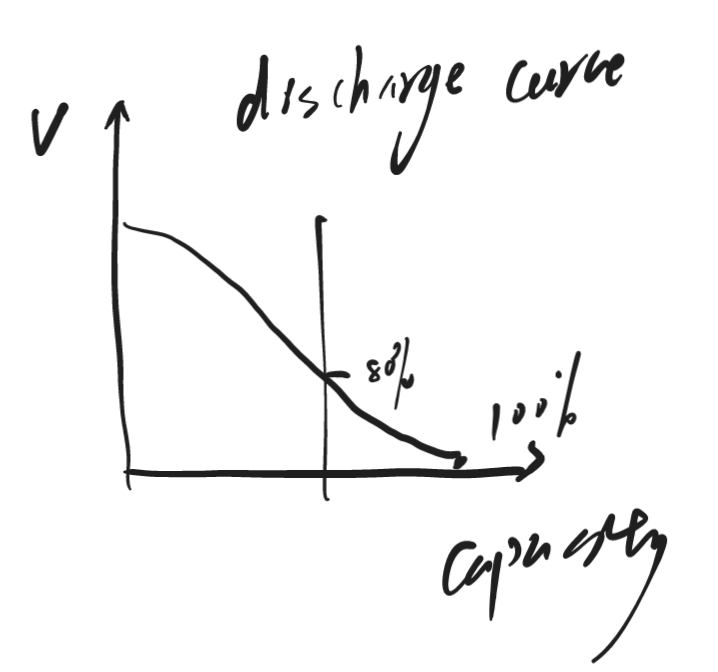 discharge curve
V
80%
100%
Capacity